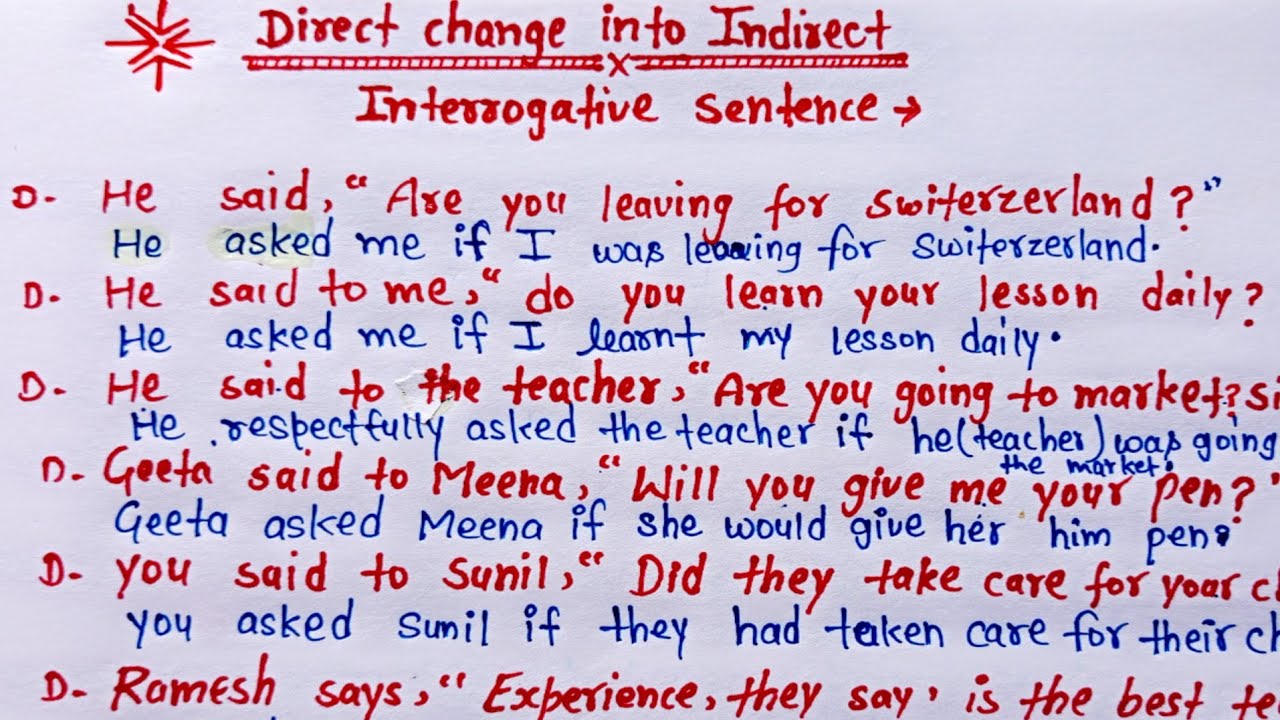 Direct change into Indirect
x
Interrogative sentence →
D- He said, "Are you leaving for switerzerland?"
He asked me if I was leaving for switerzerland.
D- He said to me, "do you learn your lesson daily?
He asked me if I learnt my lesson daily.
D- He said to the teacher, "Are you going to market?
He respectfully asked the teacher if he (teacher) was going
the market.
D- Geeta said to Meena, "Will you give me your pen?"
Geeta asked Meena if she would give her him pen.
D- you said to Sunil, "Did they take care for your
you asked sunil if they had taken care for their
D- Ramesh says, "Experience, they say, is the best